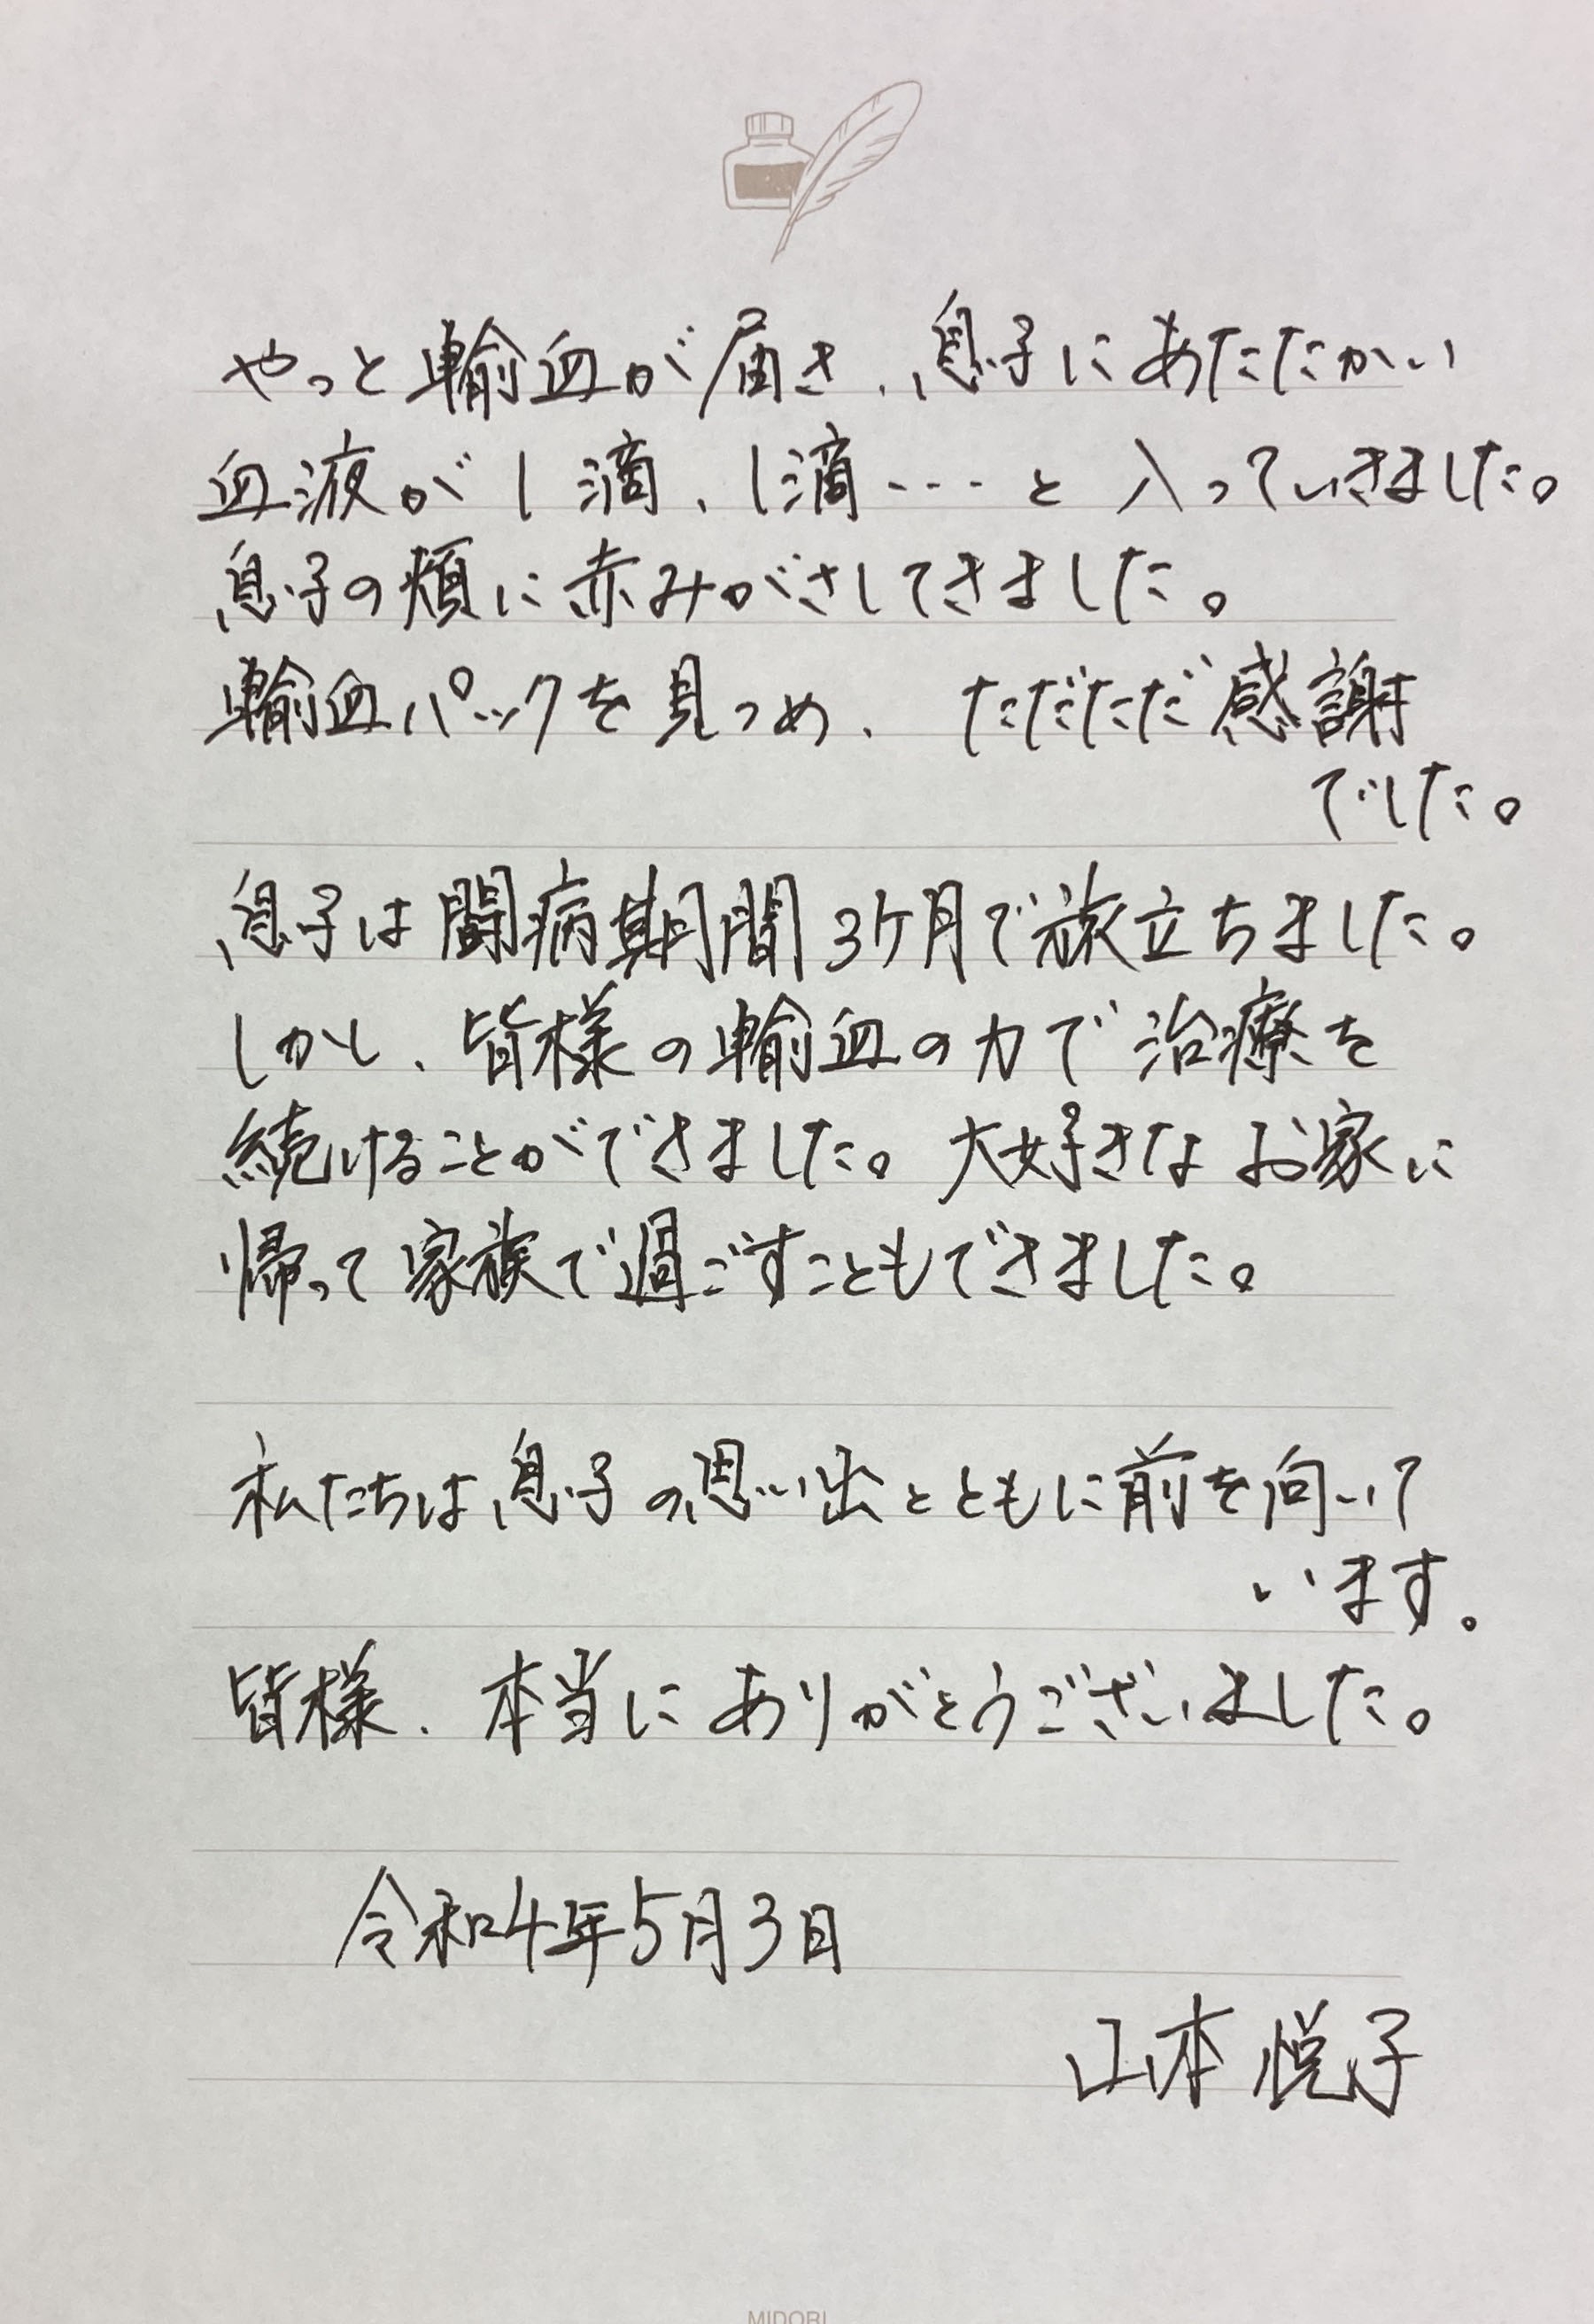 やっと輸血が届き、息子にあたたかい
血液が1滴、1滴・・・と入っていきました。
息子の頬に赤みがさしてきました。
輸血パックを見つめ、ただただ感謝
でした。
息子は闘病期間3ケ月で旅立ちました。
しかし、皆様の輸血の力で治療を
続けることができました。大好きなお家に
帰って家族で過ごすこともできました。
私たちは息子の思い出とともに前を向いて
います。
皆様、本当にありがとうございました。
令和4年5月3日
山本悦子
MIDORI